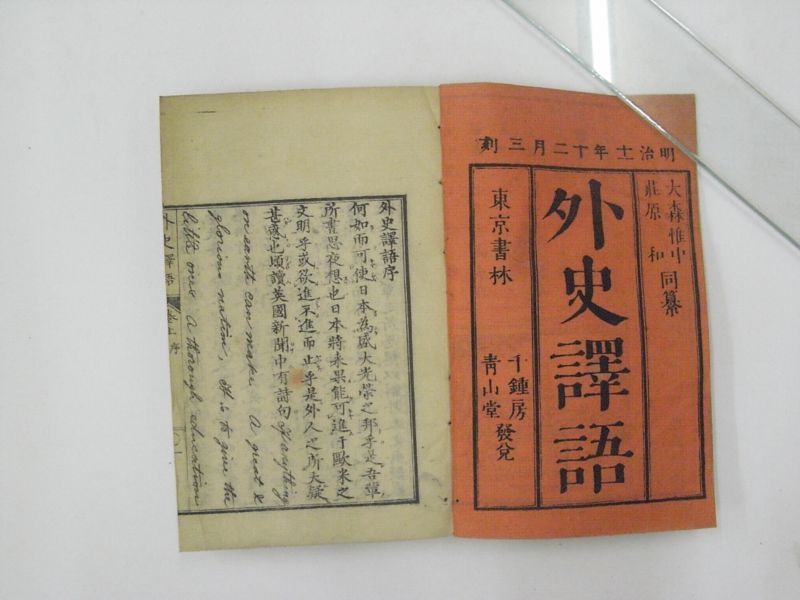 明治十一年十二月三刻
大森惟中
莊原和 同纂
外史譯語
東京書林
千鍾房
青山堂 發兌
外史譯語序
何如而可使日本為盛大光榮之邦乎是吾輩
所晝思夜想也日本將來果能可進于歐米之
文明乎或欲進不進而止乎是外人之所大疑
甚惑也頃讀英國新聞中有詩句 If anything
on earth can make a great &
glorious nation, it is to give the
little ones a thorough education
外史譯語 序